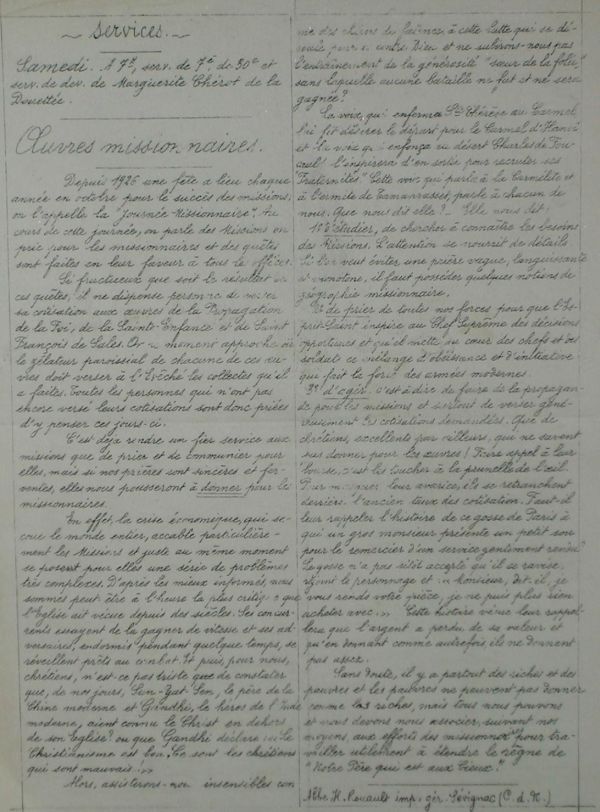 ~ Services. ~
Samedi. A 7h, serv. de 7e de 30e et
serv. de dev. de Marguerite Chérot de la
Doucettée.
Œuvres missionnaires.
Depuis 1926 une fête a lieu chaque
année en octobre pour le succès des missions,
on l'appelle la "Journée Missionnaire". Au
cours de cette journée, on parle des Missions on
prie pour les missionnaires et des quêtes
sont faites en leur faveur à tous les offices.
Si fructueux que soit le résultat de
ces quêtes, il ne dispense personne de verser
sa cotisation aux œuvres de la Propagation
de la Foi, de la Sainte-Enfance et de Saint
François de Sales. Or le moment approche où
le zélateur paroissial de chacune de ces œu-
vres doit verser à l'Evêché les collectes qu'il
a faites. Toutes les personnes qui n'ont pas
encore versé leurs cotisations sont donc priées
d'y penser ces jours-ci.
C'est déjà rendre un fier service aux
missions que de prier et de communier pour
elles, mais si nos prières sont sincères et fer-
ventes, elles nous pousseront à donner pour les
missionnaires.
En effet, la crise économique, qui se-
coue le monde entier, accable particulière-
ment les Missions et juste au même moment
se posent pour elles une série de problèmes
très complexes. D'après les mieux informés, nous
sommes peut être à l'heure la plus critique que
l'Eglise ait vécue depuis des siècles. Ses concur-
rents essayent de la gagner de vitesse et ses ad-
versaires, endormis pendant quelque temps, se
réveillent prêts au combat. Et puis, pour nous,
chrétiens, n'est-ce pas triste que de constater
que, de nos jours, Sen-Yat-Sen, le père de la
Chine moderne et Gandhi, le héros de l'Inde
moderne, aient connu le Christ en dehors
de son Eglise? ou que Gandhi déclare: "Le
Christianisme est bon. Ce sont les chrétiens
qui sont mauvais!"
Alors, assisterons-nous insensibles com
me des chiens de faïence, à cette lutte qui se dé-
roule pour et contre Dieu et ne subirons-nous pas
l'entraînement de la générosité "sœur de la folie",
sans laquelle aucune bataille ne fut et ne sera
gagnée?
La voix, qui enferma Ste Thérèse au Carmel
lui fit désirer le départ pour le Carmel d'Hanoï
et la voix qui enfonça au désert Charles de Fou-
cauld l'inspirera d'en sortir pour recruter ses
"Fraternités". Cette voix qui parla à la Carmélite et
à l'ermite de Tamanrasset, parle à chacun de
nous. Que nous dit-elle? _ Elle nous dit:
1º d'étudier, de chercher à connaître les besoins
des Missions. L'attention se nourrit de détails.
Si l'on veut éviter une prière vague, languissante
et monotone, il faut posséder quelques notions de
géographie missionnaire.
2º de prier de toutes nos forces pour que l'Es-
prit-Saint inspire au Chef Suprême des décisions
opportunes et qu'il mette au cœur des chefs et des
soldats ce mélange d'obéissance et d'initiative
qui fait la force des armées modernes.
3º d'agir, c'est à dire de faire de la propagan-
de pour les missions et surtout de verser géné-
reusement les cotisations demandées. Que de
chrétiens, excellents par ailleurs, qui ne savent
pas donner pour les œuvres! Faire appel à leur
bourse, c'est les toucher à la prunelle de l'œil.
Pour masquer leur avarice, ils se retranchent
derrière l'ancien taux des cotisations. Faut-il
leur rappeler l'histoire de ce gosse de Paris à
qui un gros monsieur présente un petit sou
pour le remercier d'un service gentiment rendu?
Le gosse n'a pas sitôt accepté qu'il se ravise,
rejoint le personnage et "Monsieur, dit-il, je
vous rends votre pièce, je ne puis plus rien
acheter avec." Cette histoire vécue leur rappel-
lera que l'argent a perdu de sa valeur et
qu'en donnant comme autrefois, ils ne donnent
pas assez.
Sans doute, il y a partout des riches et des
pauvres et les pauvres ne peuvent pas donner
comme les riches, mais tous nous pouvons
et nous devons nous associer, suivant nos
moyens aux efforts des missionnaires pour tra-
vailler utilement à étendre le règne de
"Notre Père qui est aux Cieux."
Abbé H. Rouault imp. gér. Sévignac (C. d. N.)